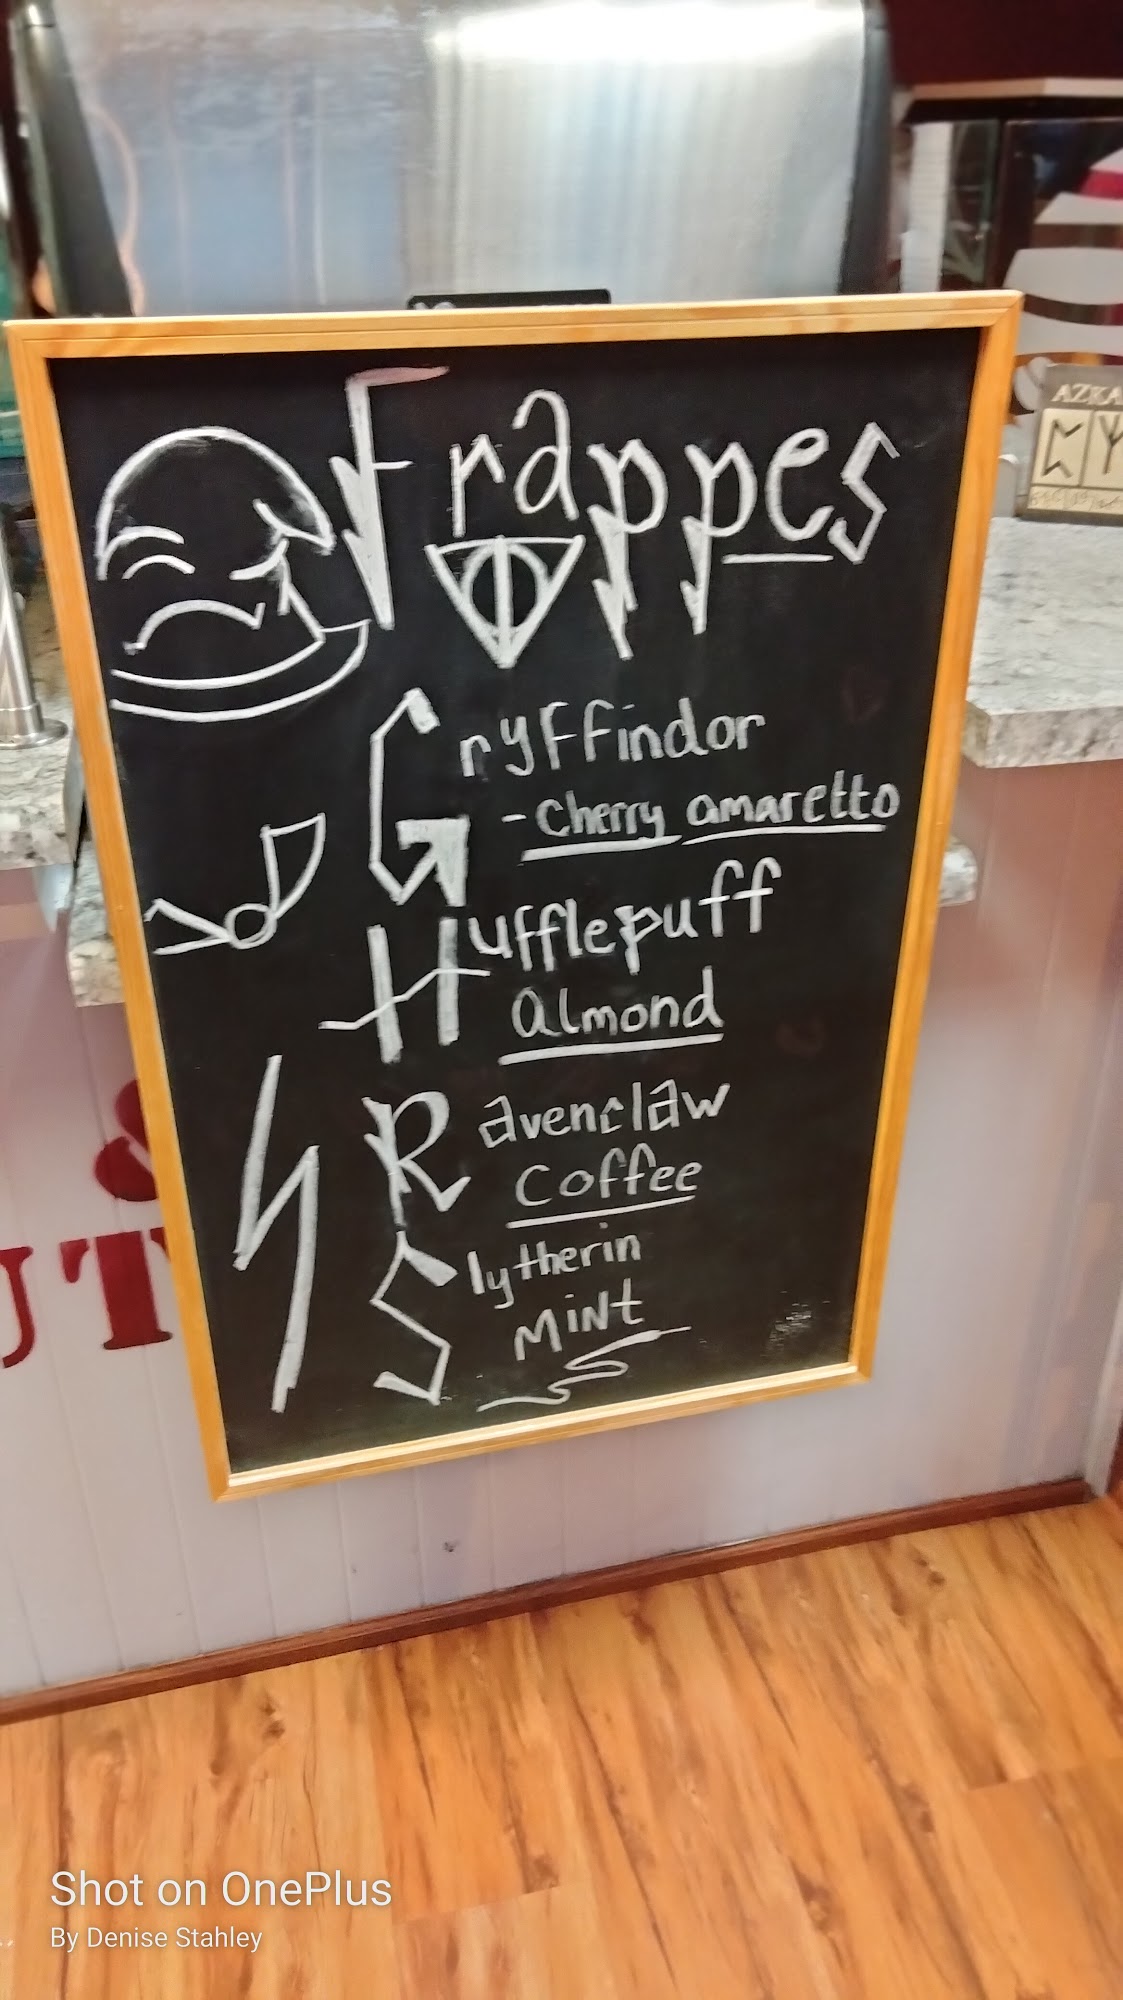 Frappes
Gryffindor
- Cherry amaretto
Hufflepuff
Almond
Ravenclaw
Coffee
Slytherin
MiNt
AZKA
&
UT
Shot on OnePlus
By Denise Stahley